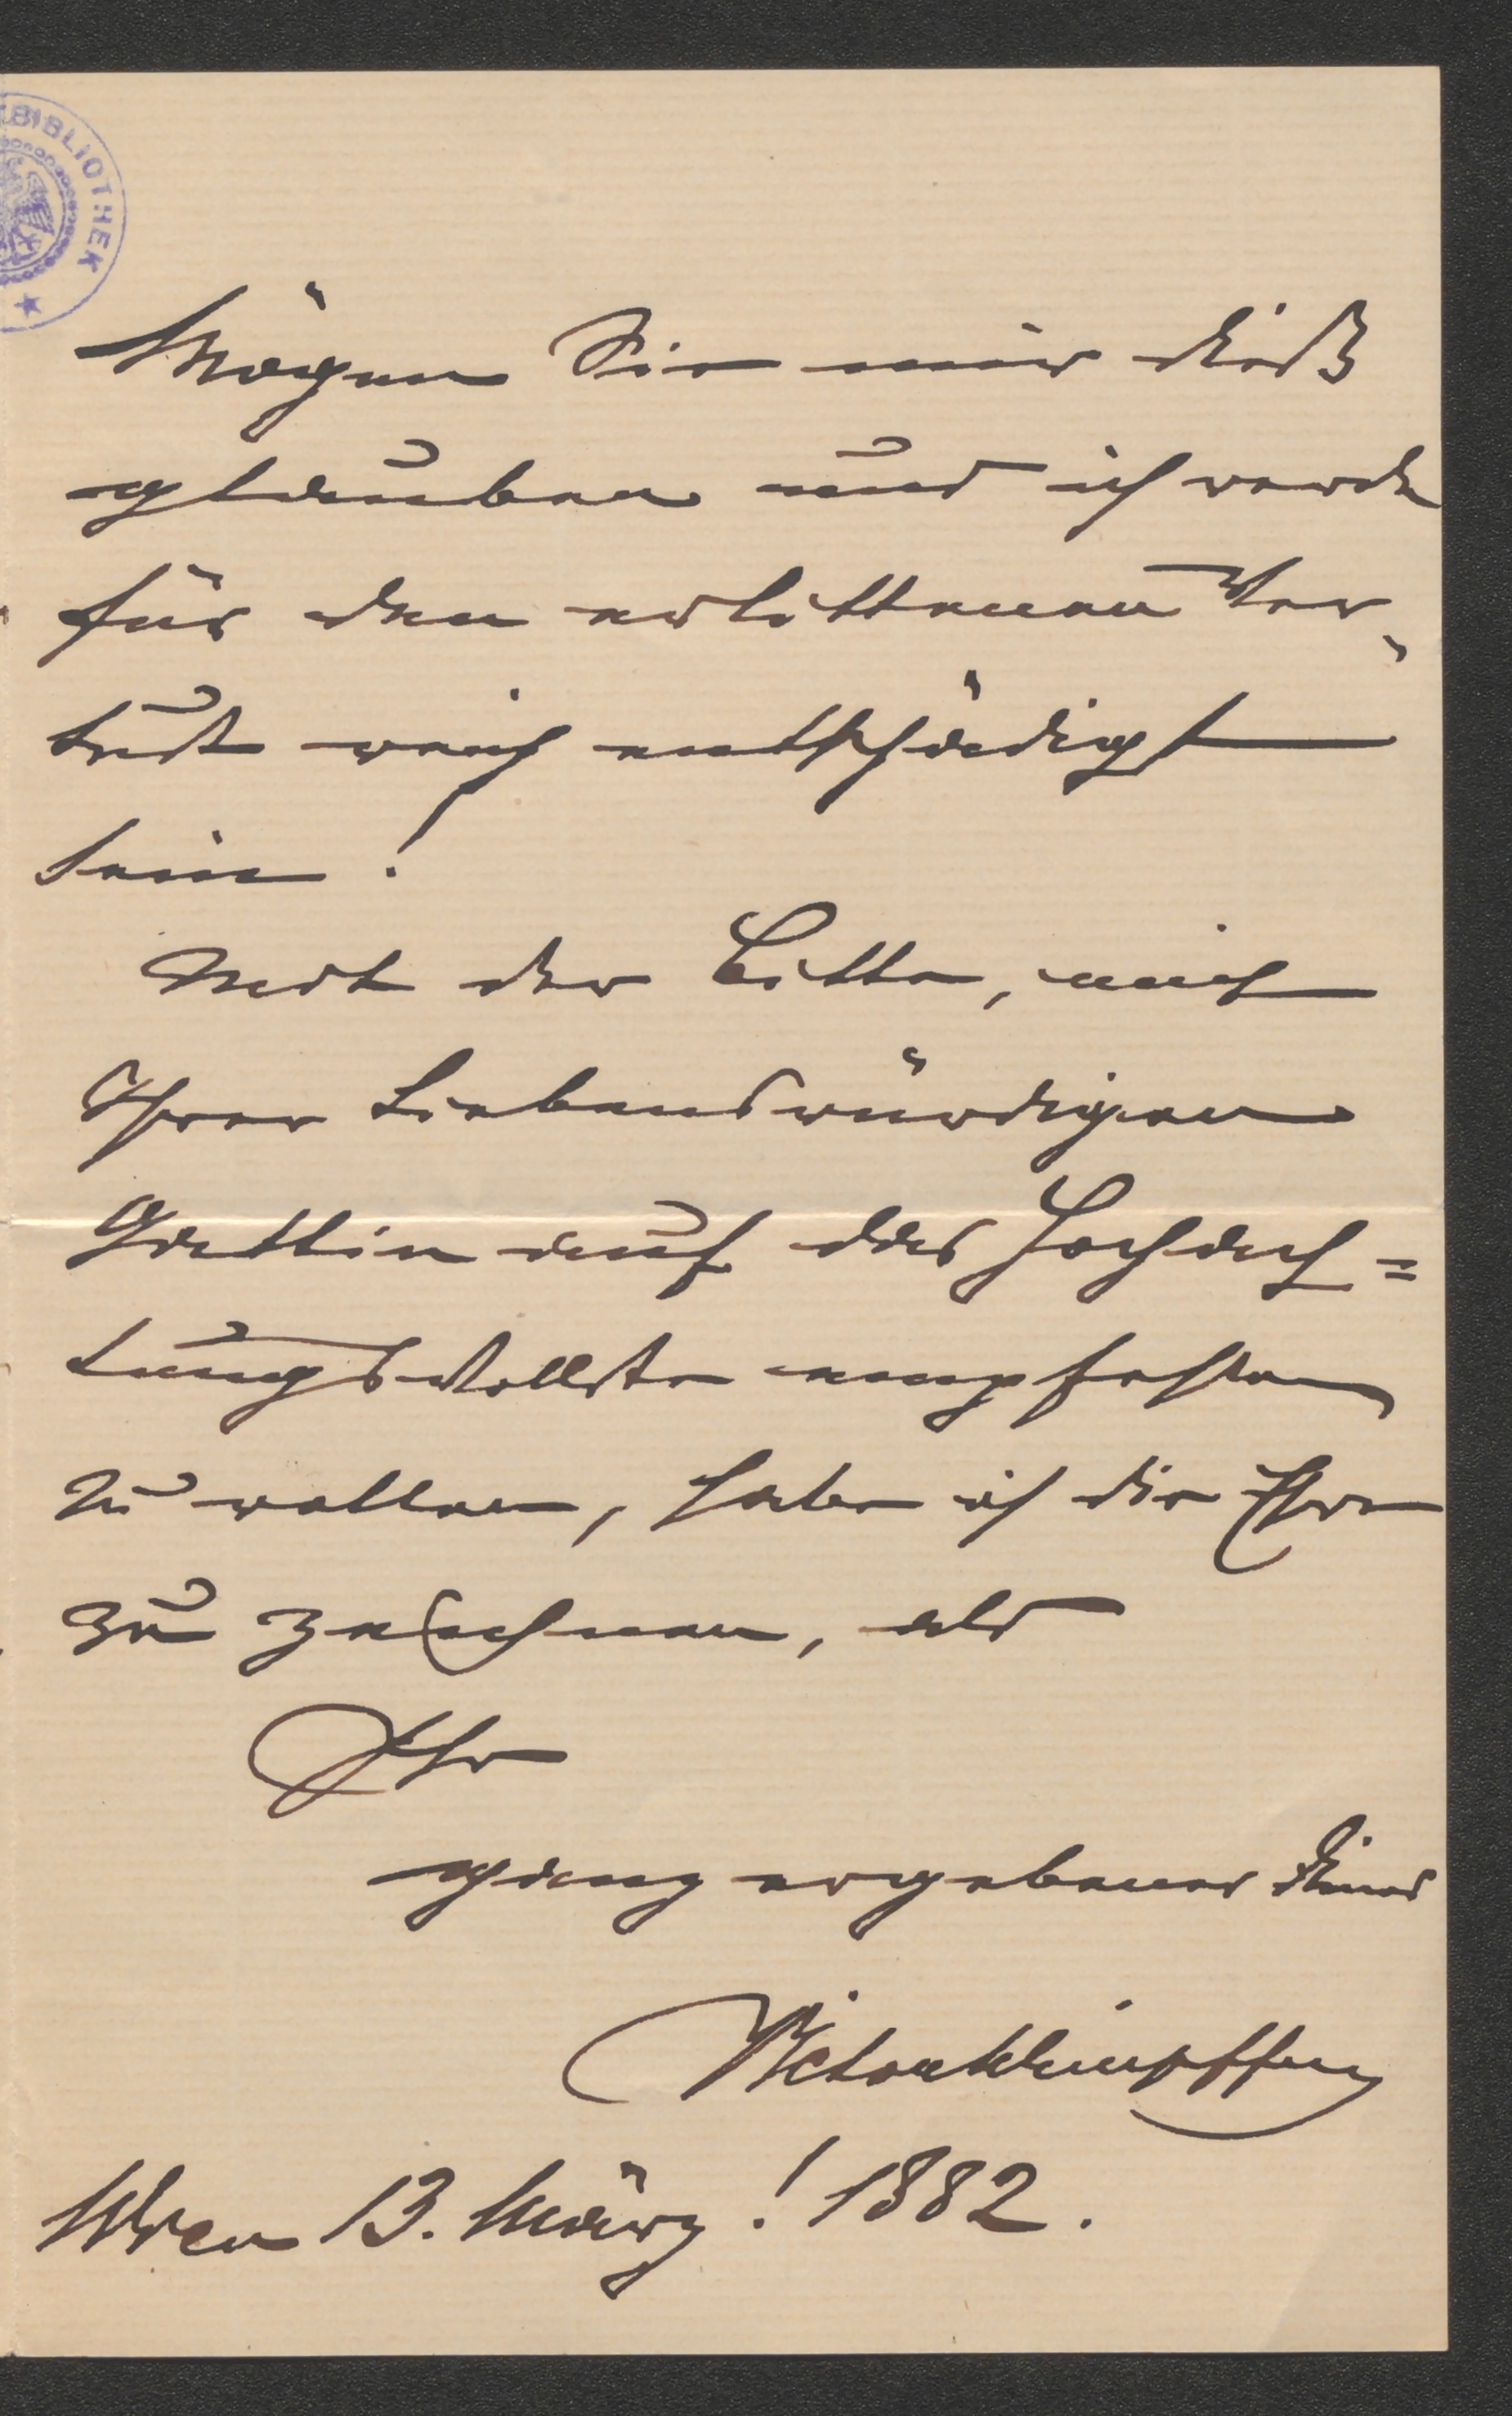 BIBLIOTHEK
Mögen Sie mir dieß
glauben und ich werde
für den erlittenen Ver-
lust reich entschädigt
sein!
Mit der Bitte, mich
Ihrer liebenswürdigen
Gattin auf das Hochach=
tungsvollste empfehlen
zu wollen, habe ich die Ehre
zu zeichnen, als
Ihr
ganz ergebener Diener
Wien 13. März! 1882.